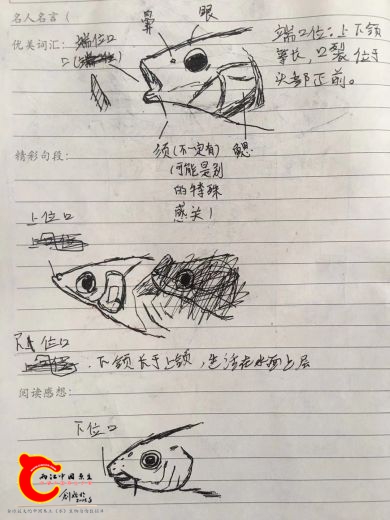 名人名言（
鼻 眼
优美词汇： 端位口
口（端位）
端口位：上下颌
等长，口裂位于
头部正前。
精彩句段：
须（不一定有） 鳃
（可能是别
的特殊
感关）
上位口
上位口
下颌长于上颌，生活在水面上层
阅读感想：
下位口
两江中国原生